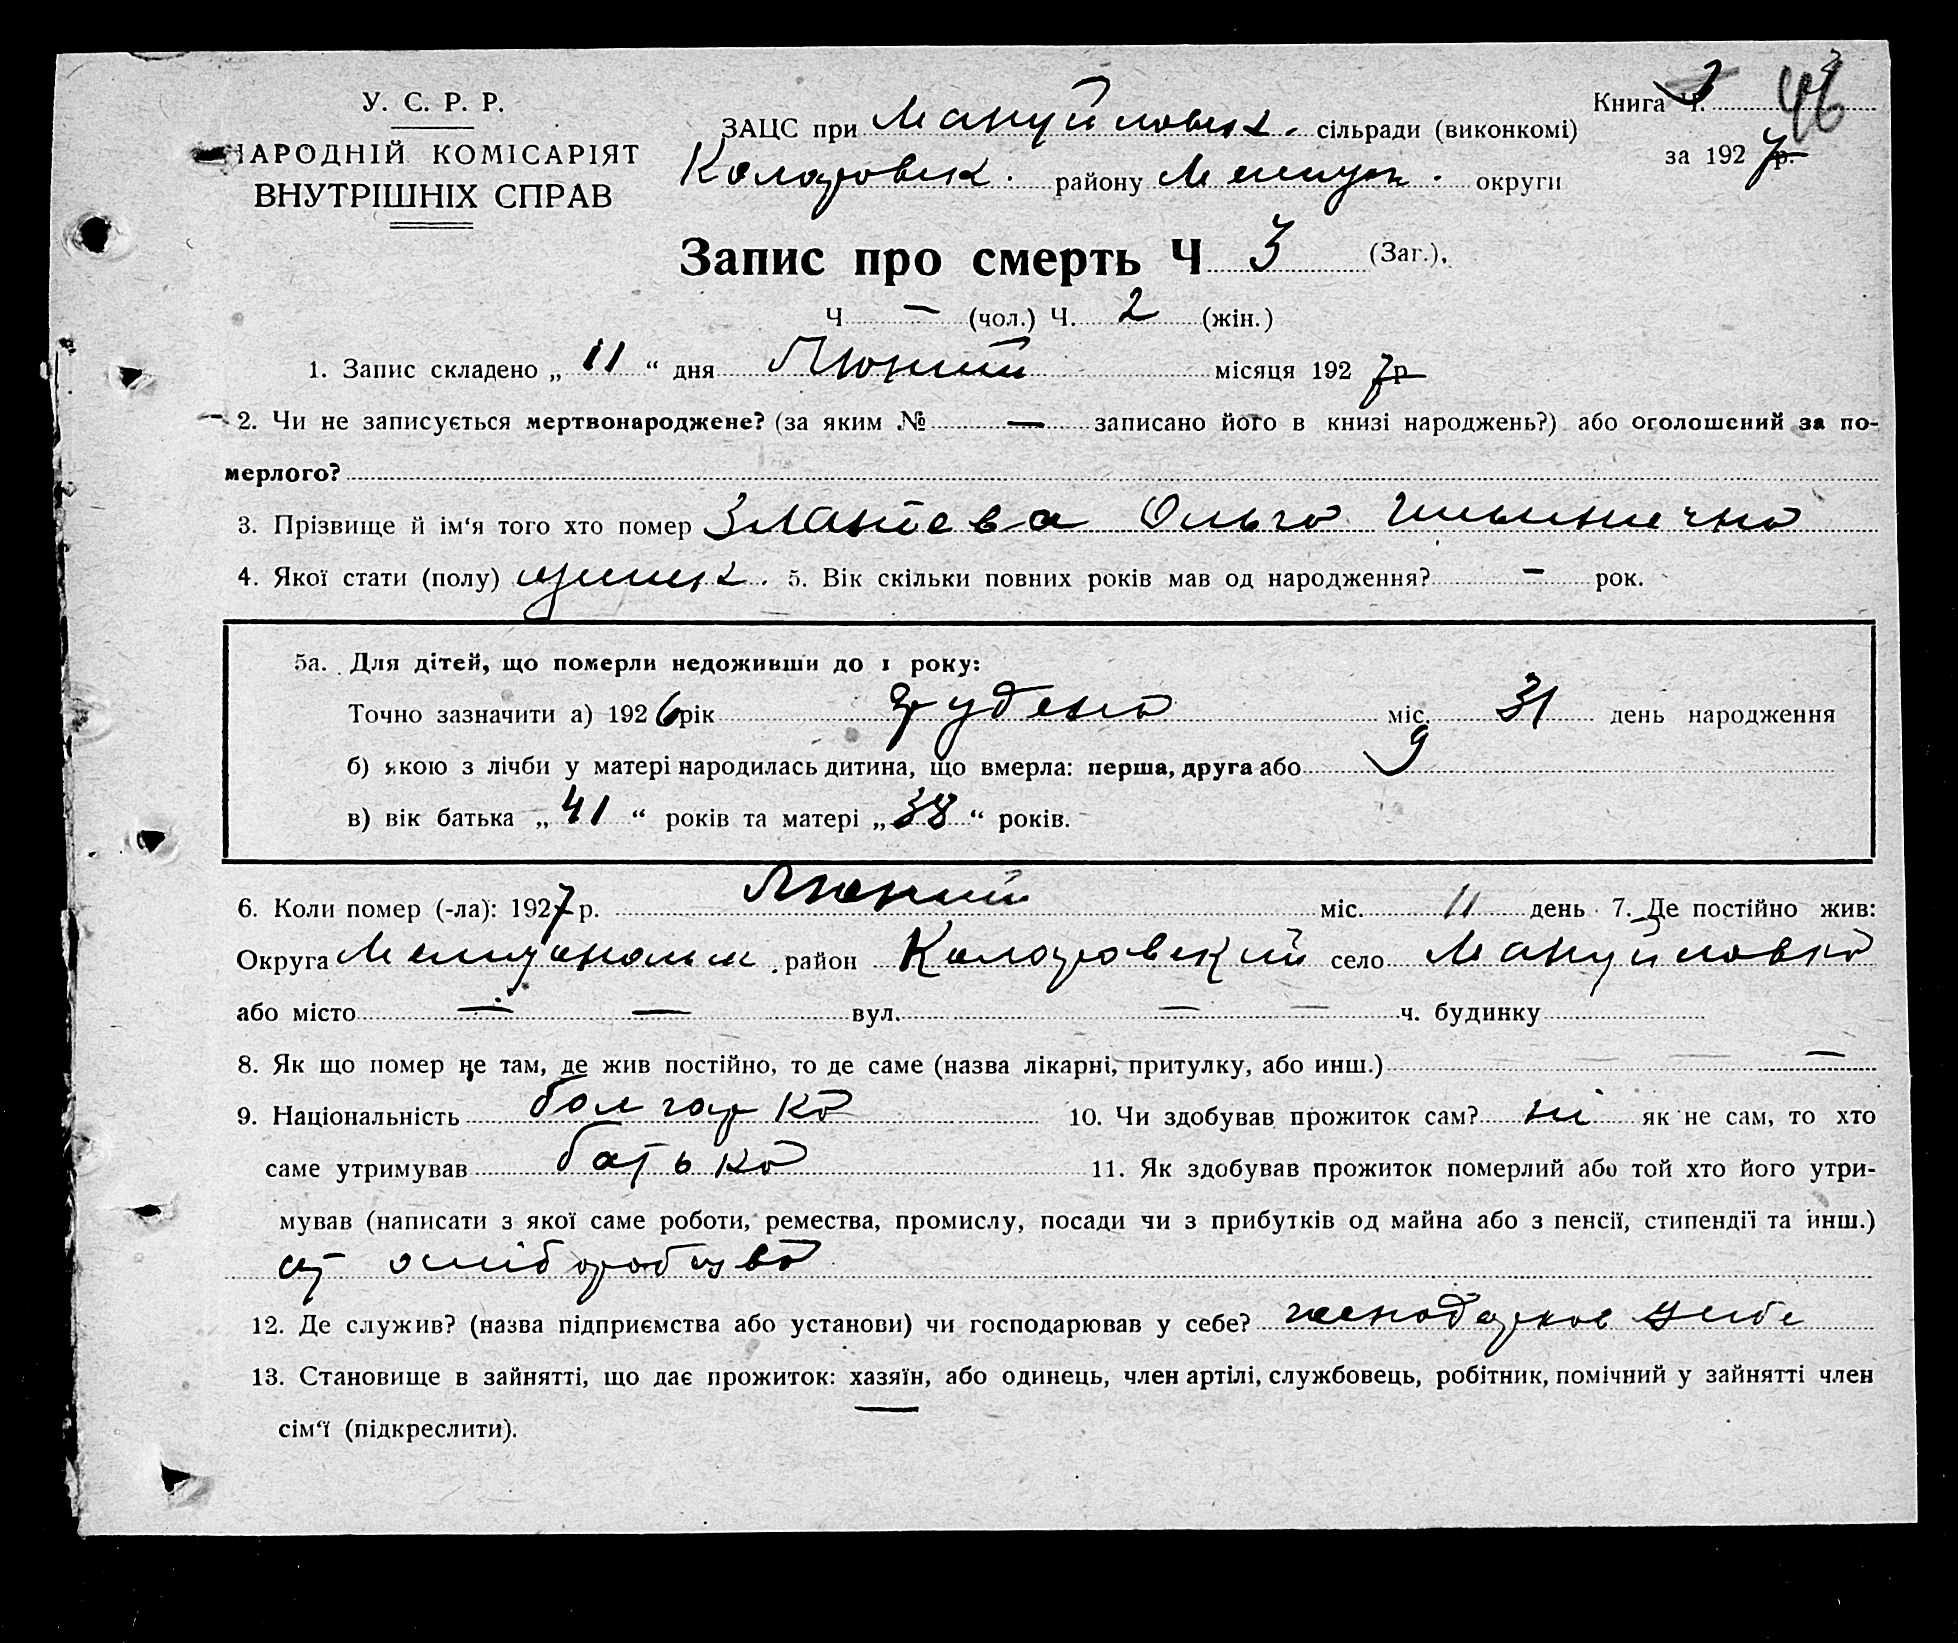 У. С. Р. Р.
НАРОДНІЙ КОМІСАРІЯТ
ВНУТРІШНІХ СПРАВ
Книга Ч. 46
за 1927 р.
ЗАЦС при Мануйловськ. сільради (виконкомі)
району округи
Запис про смерть Ч 3 (Заг.).
Ч — (чол.) Ч. 2 (жін.)
1. Запис складено „ 11 “ дня Лютий місяця 1927 р
2. Чи не записується мертвонароджене? (за яким № — записано його в книзі народжень?) або оголошений за по-
мерлого?
3. Прізвище й ім‘я того хто помер Ольга
4. Якої стати (полу) 5. Вік скільки повних років мав од народження? - рок.
5а. Для дітей, що померли недоживши до 1 року:
Точно зазначити а) 1926 рік грудень міс. 31 день народження
б) якою з лічби у матері народилась дитина, що вмерла: перша, друга або 9
в) вік батька „ 41 “ років та матері „ 38 “ років.
6. Коли помер (-ла): 1927 р. Лютий міс. 11 день 7. Де постійно жив:
Округа район село Мануйловка
або місто — — вул. — — ч. будинку
8. Як що помер не там, де жив постійно, то де саме (назва лікарні, притулку, або инш.) —
9. Національність болгарка 10. Чи здобував прожиток сам? ні як не сам, то хто
саме утримував батько 11. Як здобував прожиток померлий або той хто його утри-
мував (написати з якої саме роботи, ремества, промислу, посади чи з прибутків од майна або з пенсії, стипендії та инш.)
хліборобства
12. Де служив? (назва підприємства або установи) чи господарював у себе? у себе
13. Становище в зайнятті, що дає прожиток: хазяїн, або одинець, член артілі, службовець, робітник, помічний у зайнятті член
сім‘ї (підкреслити).